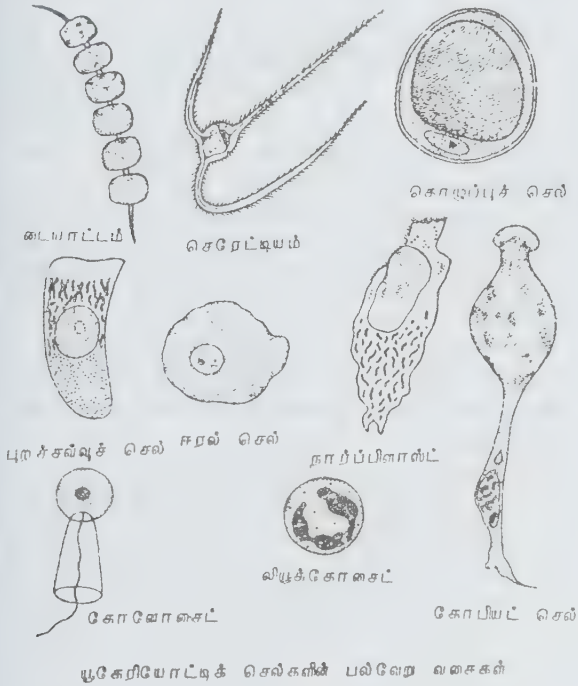 டையாட்டம்
செரேட்டியம்
கொழுப்புச் செல்
புறச்சவ்வுச் செல்
ஈரல் செல்
நார்ப்பிளாஸ்ட்
கோவோசைட்
லியூக்கோசைட்
கோபியட் செல்
யூகேரியோட்டிக் செல்களின் பல்வேறு வகைகள்